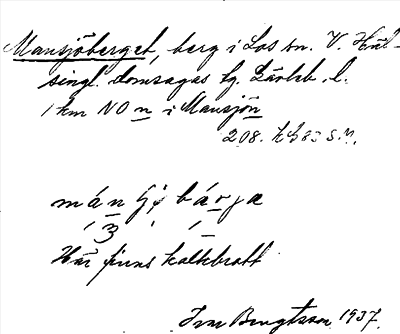 Mansjöberget, berg i Los sn. V. Häl-
singl. domsagas tg. Gävleb. l.
1 km NO n i Mansjön
208. S.V.
mán bárja
Här finns kalkbrott
Bengtsson 1937.